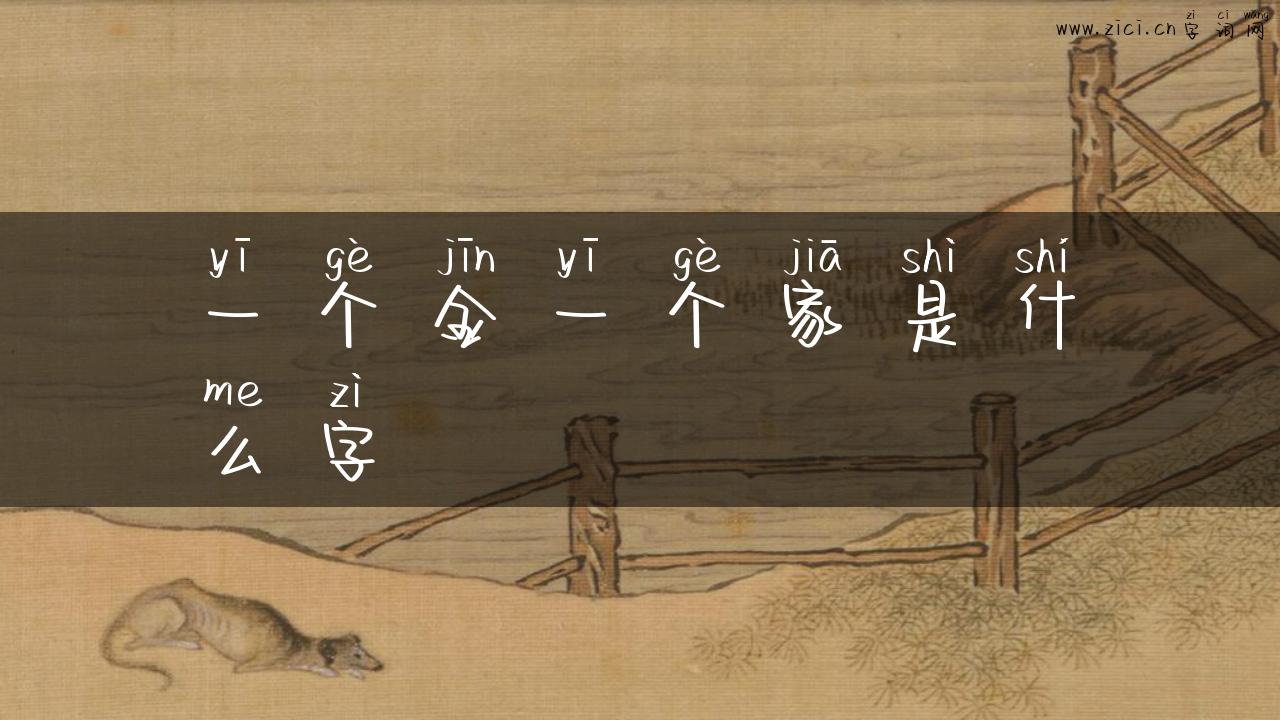 zì cí wǎng
www.zici.cn字词网
yī gè jīn yī gè jiā shì shí
一个金一个家是什
me zì
么字